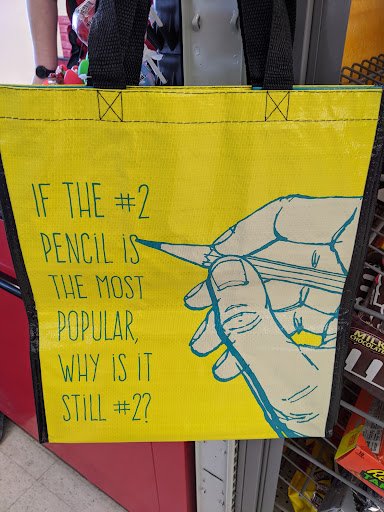 IF THE #2
PENCIL IS
THE MOST
POPULAR,
WHY IS IT
STILL #2?
MILK
CHOCOLATE